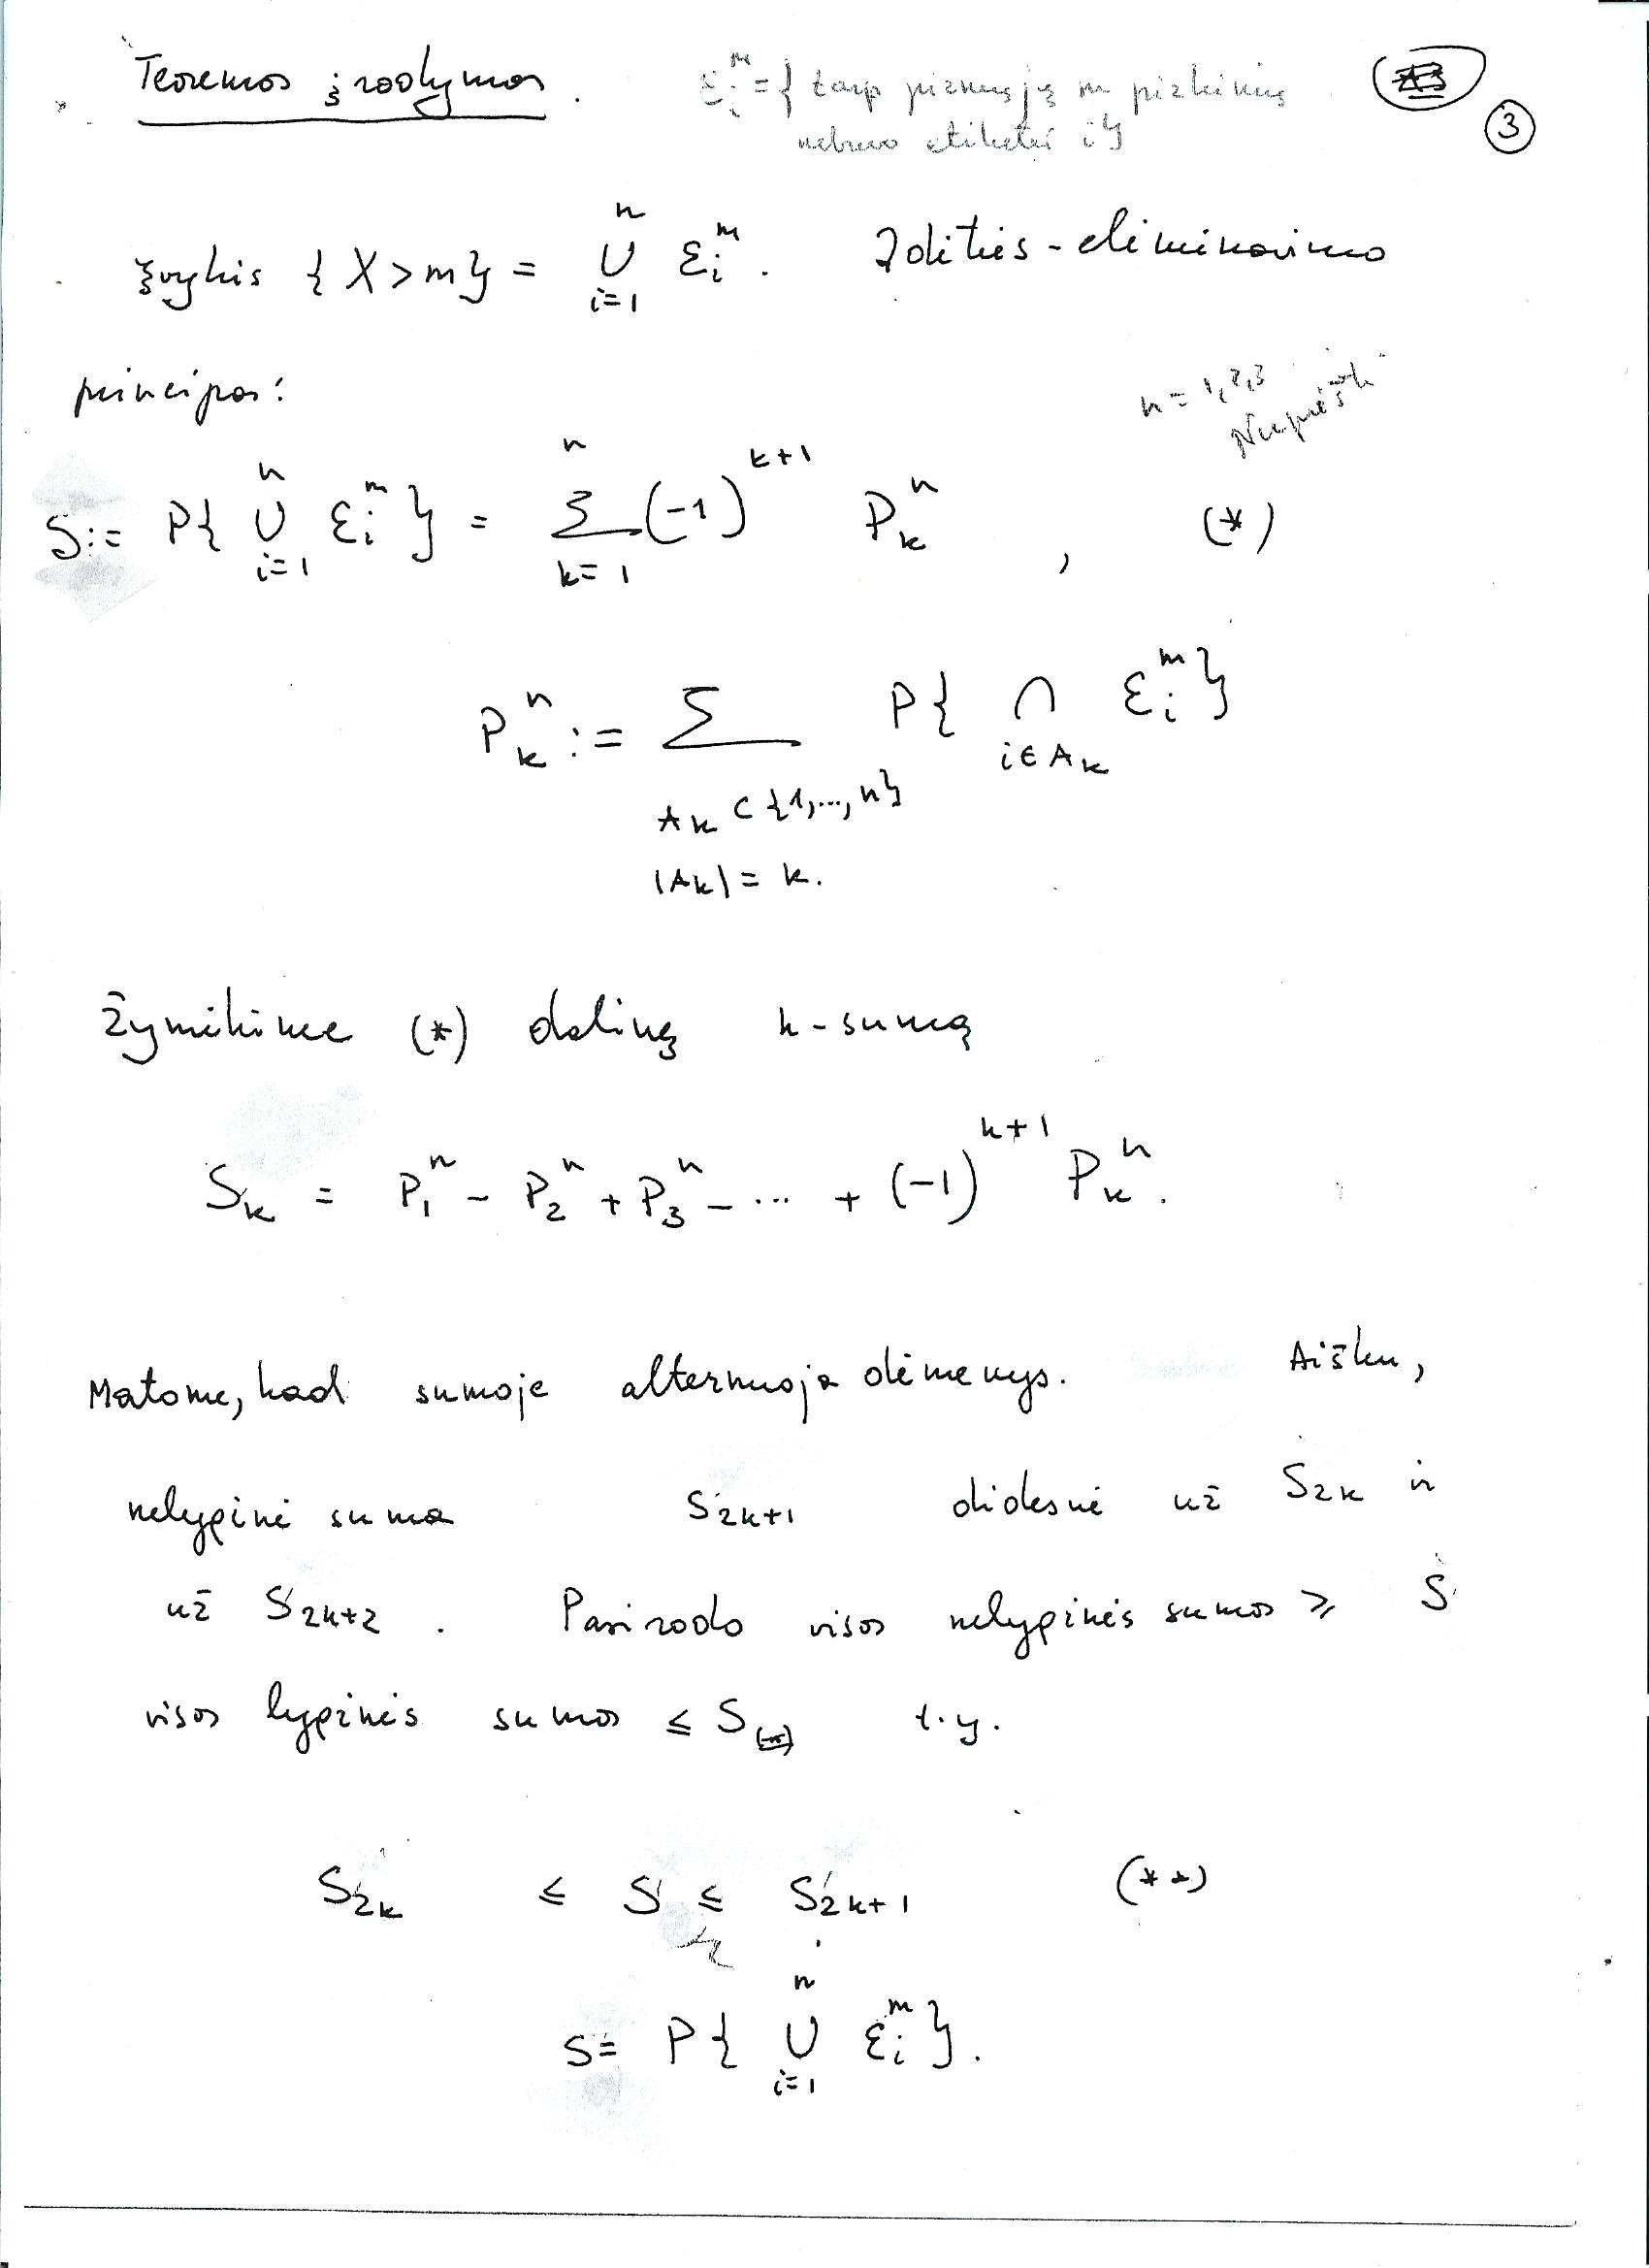 Teoremos įrodymas.
ε_i^m = { tarp pirmųjų m pirkinių
nebuvo etiketės i }
3
Įvykis { X > m } = ⋃_{i=1}^{n} ε_i^m. Įdėties-eliminavimo
principas:
n = 1,2,3
S := P{ ⋃_{i=1}^{n} ε_i^m } = ∑_{k=1}^{n} (-1)^{k+1} P_k^n , (*)
P_k^n := ∑ P{ ⋂_{i∈A_k} ε_i^m }
A_k ⊂ {1,...,n}
|A_k| = k.
Žymėkime (*) dalinę k-sumą
S_k = P_1^n - P_2^n + P_3^n - ... + (-1)^{k+1} P_k^n.
Matome, kad sumoje alternuoja dėmenys. Aišku,
nelyginė suma S_{2k+1} didesnė už S_{2k} ir
už S_{2k+2}. Pasirodo visos nelyginės sumos ≥ S
visos lyginės sumos ≤ S t.y.
S_{2k} ≤ S ≤ S_{2k+1} (**)
S = P{ ⋃_{i=1}^{n} ε_i^m }.